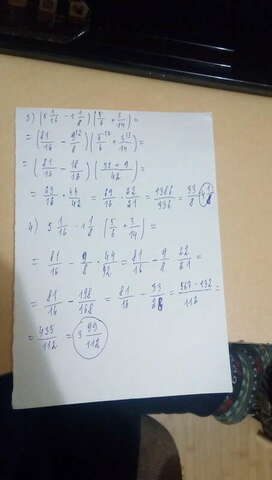 3) (5 1/16 - 1 1/8) (5/6 + 3/14) =
= (81/16 - 9/8) (5/6 + 3/14) =
= (81/16 - 18/16) (35 + 9/42) =
= 63/16 · 44/42 = 63/16 · 22/21 = 1386/336 = 33/8 = 4 1/8
4) 5 1/16 - 1 1/8 (5/6 + 3/14) =
= 81/16 - 9/8 · 44/42 = 81/16 - 9/8 · 22/21 =
= 81/16 - 198/168 = 81/16 - 33/28 = 567 - 132/112 =
= 435/112 = 3 99/112